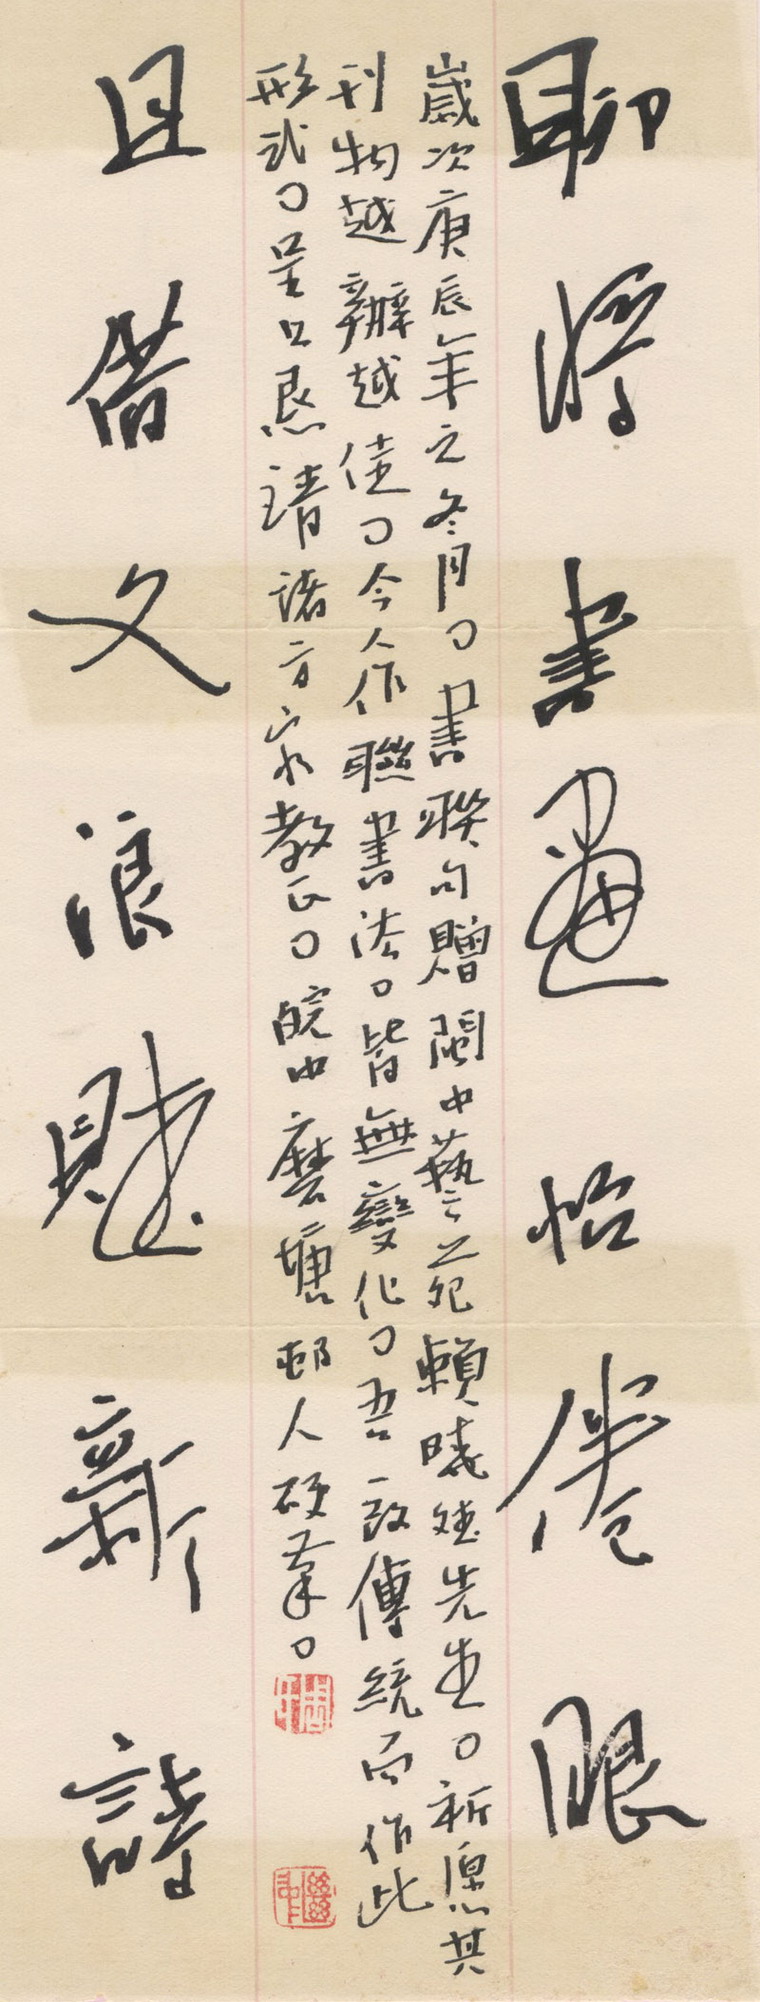 聊将書畫怡倦眼
歲次庚辰年之冬月書聯句贈閩中藝苑賴曉斌先生祈愿其
刊物越辦越佳今人作聯書法皆無變化吾改傳統而作此
形式呈上恳請諸方家教正皖中磨塘邨人硬筆
且借文浪賦新詩